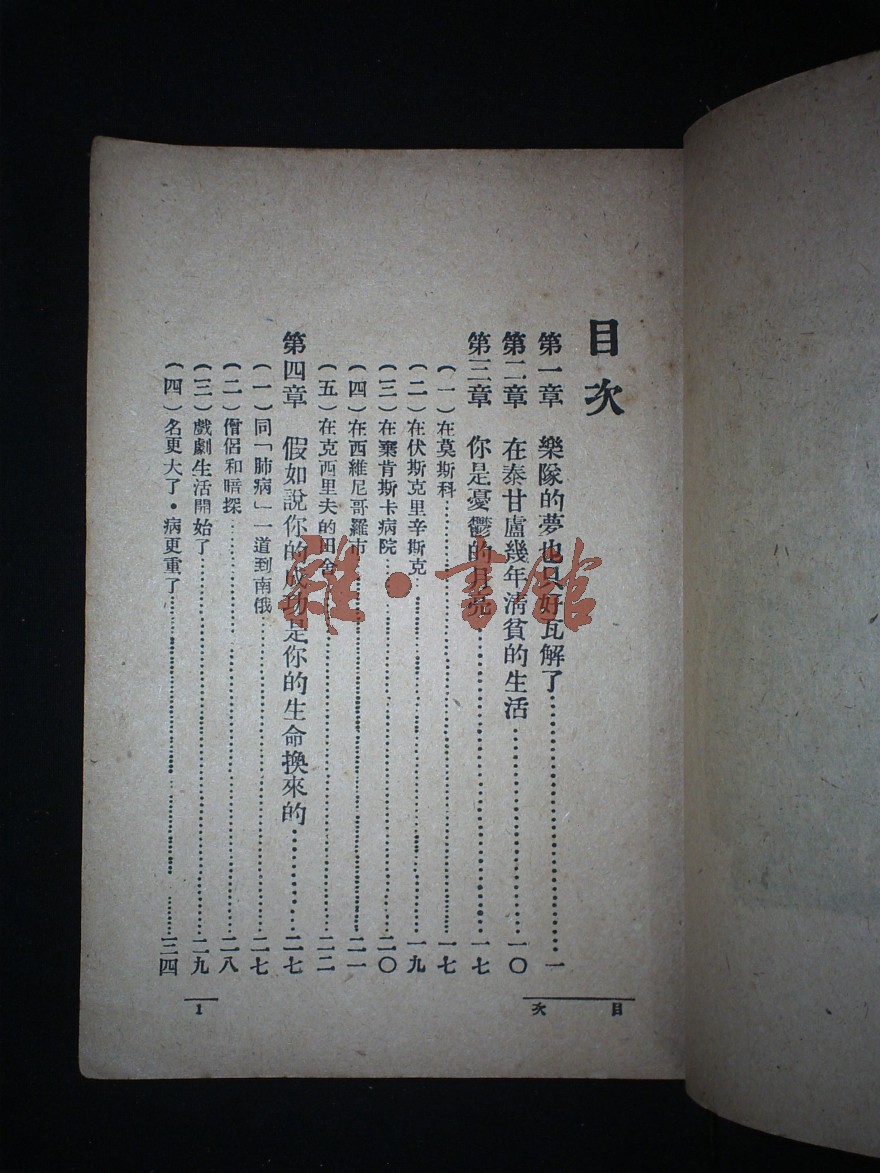 目次
第一章 樂隊的夢也只好瓦解了……一
第二章 在泰甘盧幾年清貧的生活……一〇
第三章 你是憂鬱的月亮……一七
(一)在莫斯科……一七
(二)在伏斯克里辛斯克……一九
(三)在棄肯斯卡病院……二〇
(四)在西維尼哥羅市……二一
(五)在克西里夫的田舍……二二
第四章 假如說你的成功是你的生命換來的……二七
(一)同「肺病」一道到南俄……二七
(二)僧侶和暗探……二八
(三)戲劇生活開始了……二九
(四)名更大了·病更重了……三四
目次
1
雜·書館